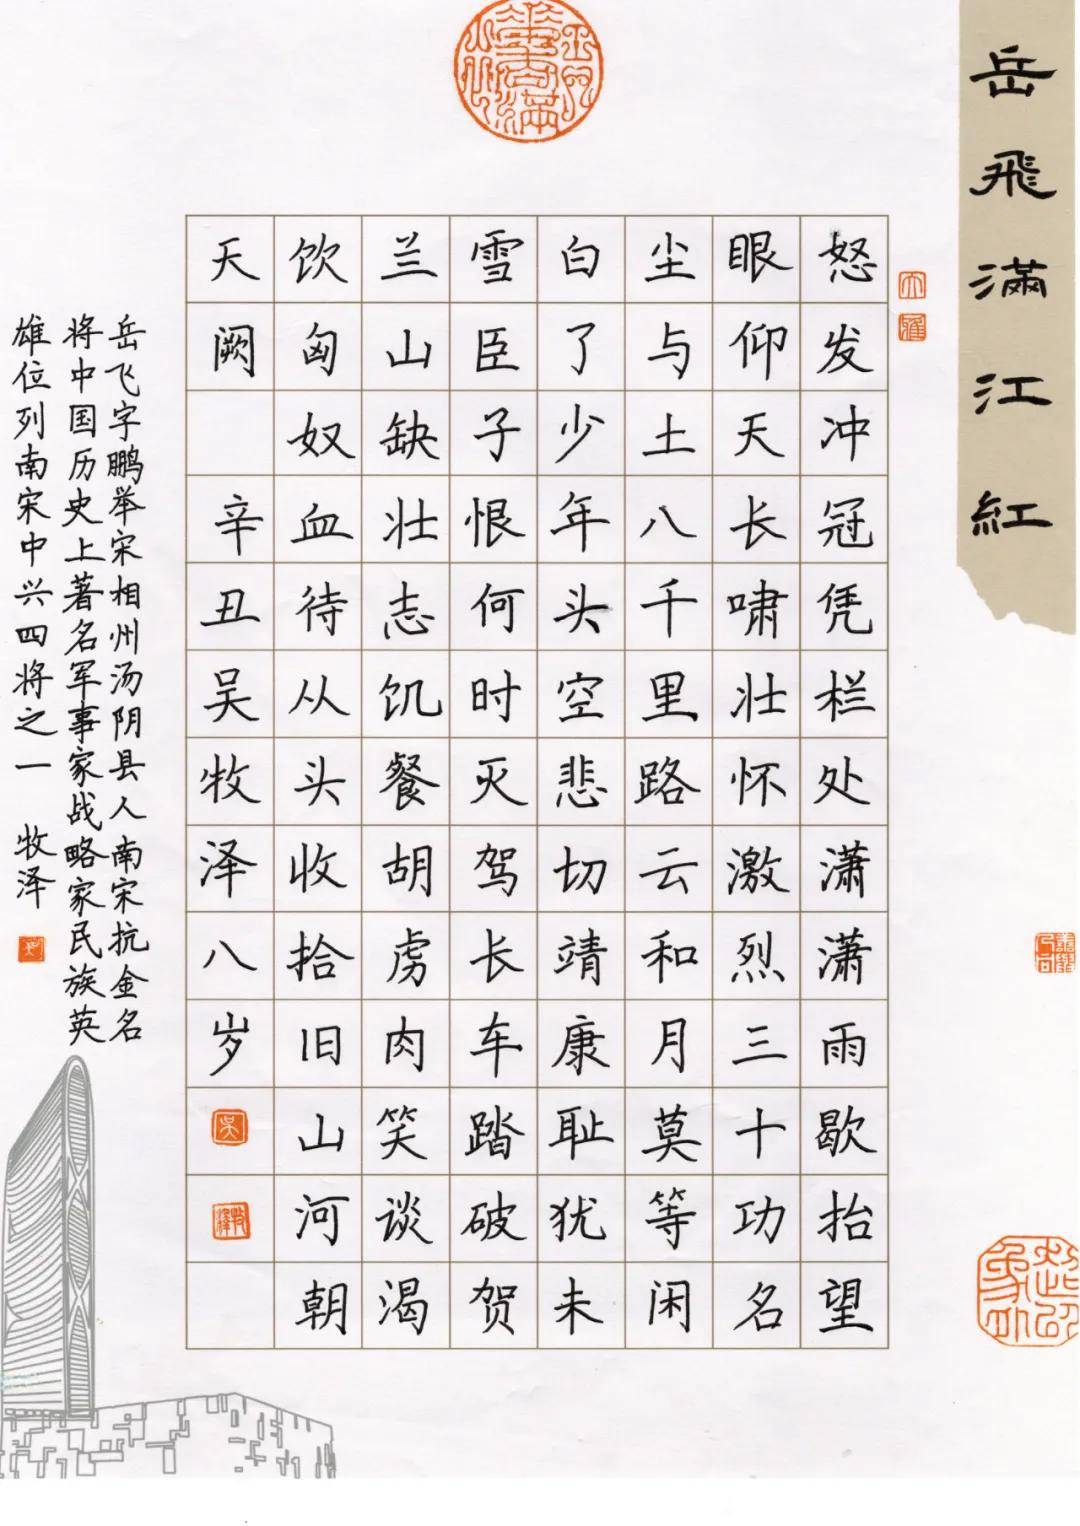 岳飛滿江紅
大雅
怒发冲冠凭栏处潇潇雨歇抬望
眼仰天长啸壮怀激烈三十功名
尘与土八千里路云和月莫等闲
白了少年头空悲切靖康耻犹未
雪臣子恨何时灭驾长车踏破贺
兰山缺壮志饥餐胡虏肉笑谈渴
饮匈奴血待从头收拾旧山河朝
天阙 辛丑吴牧泽八岁
吴
岳飞字鹏举宋相州汤阴县人南宋抗金名
将中国历史上著名军事家战略家民族英
雄位列南宋中兴四将之一 牧泽